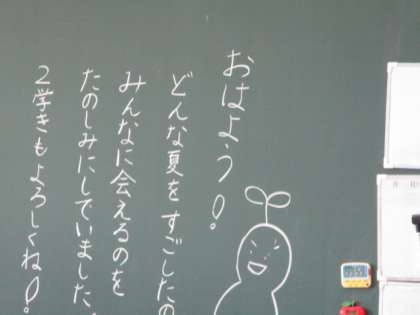 おはよう!
どんな夏をすごしたの
みんなに会えるのを
たのしみにしていました。
2学きもよろしくね!